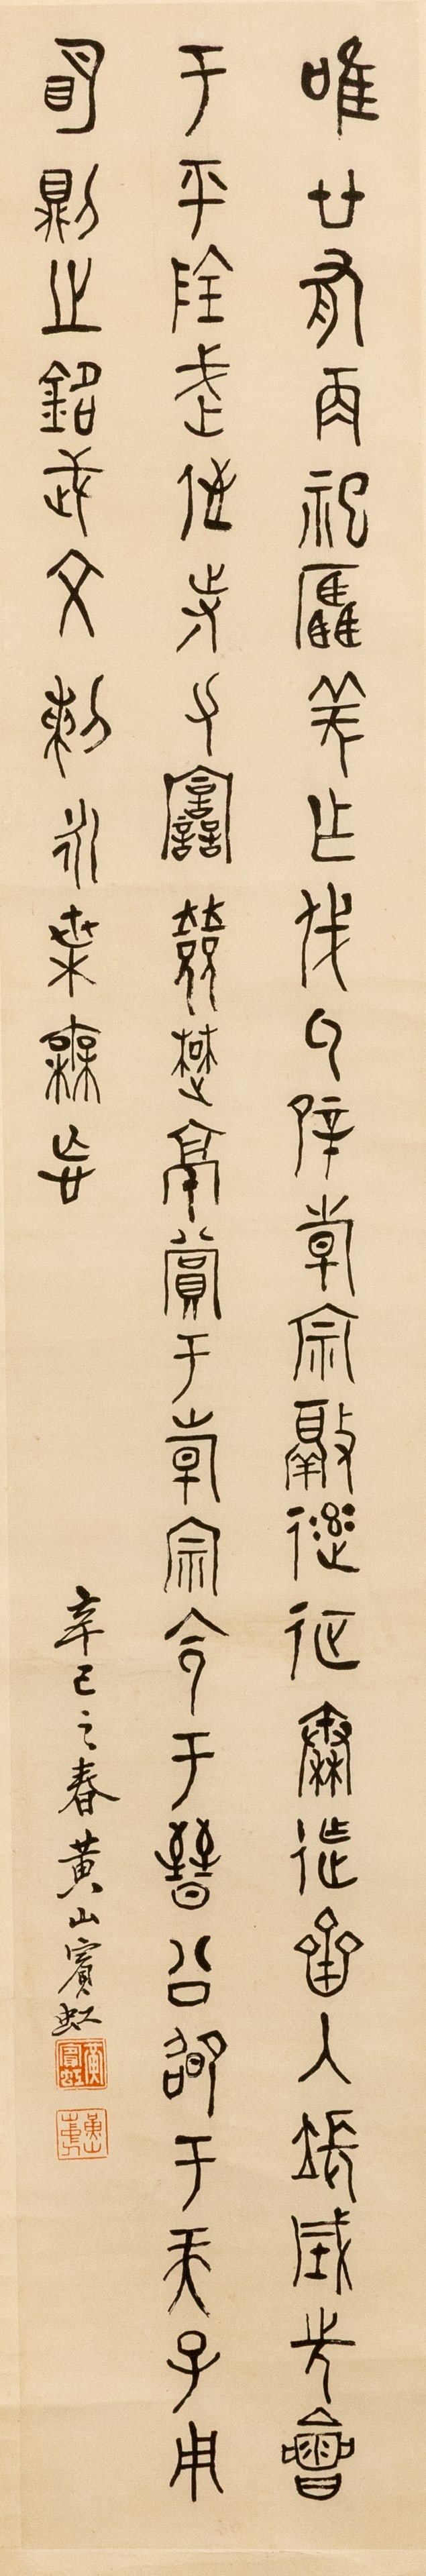 唯廿有再祀驫羌乍戎氒辟倝宗敲䢦征秦迮齊入長城先會
于平陰武侄寺力譶敓楚京賞于倝宗令于晉公邵于天子用
明則之銘武文剌永枼無忘
辛巳之春黃山賓虹
黃賓虹